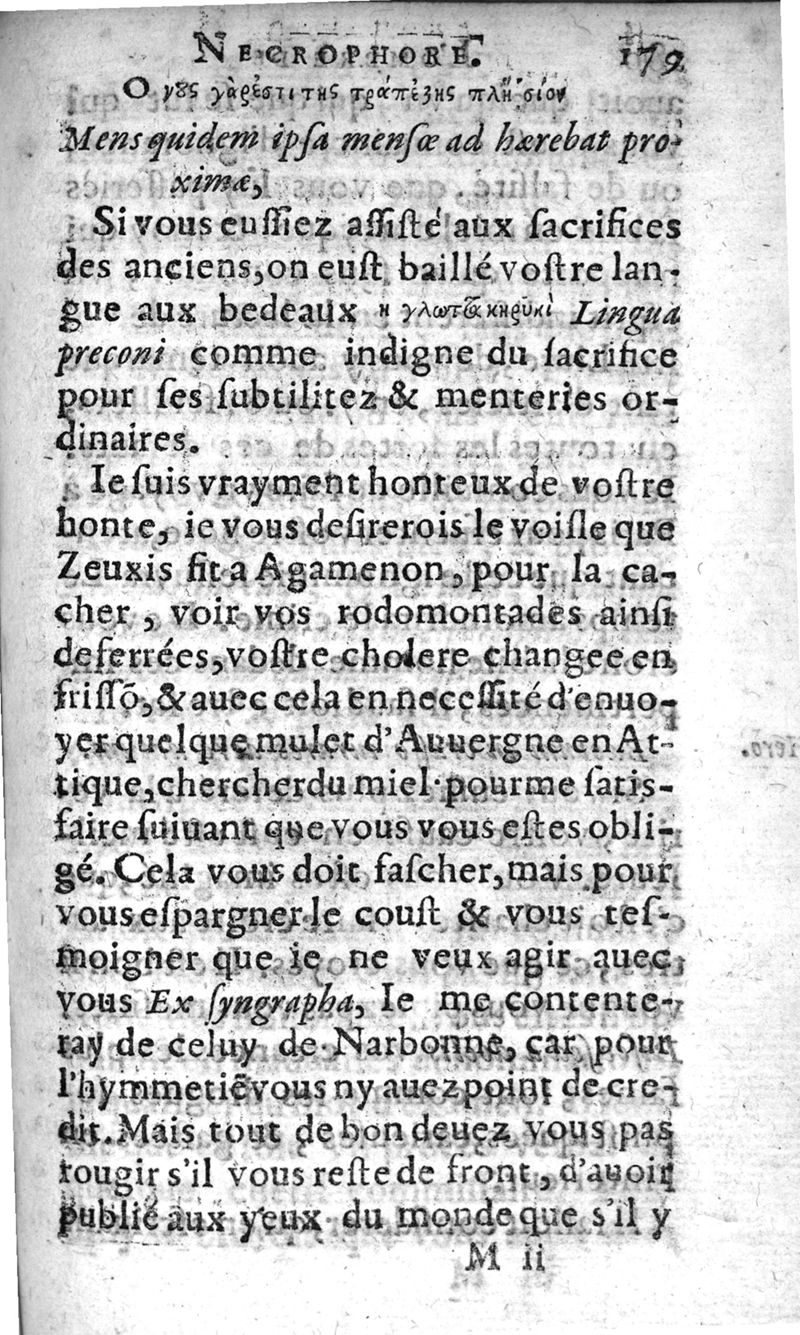 NECROPHORE. 179
Ο νȣς γὰρἐστι της τραπέζης πλησίον
Mens quidem ipſa menſæ ad hærebat pro-
ximæ,
Si vous euſſiez aſſiſté aux ſacrifices
des anciens, on euſt baillé voſtre lan-
gue aux bedeaux η γλωττα κηρῦκι Lingua
preconi comme indigne du ſacrifice
pour ſes ſubtilitez & menteries or-
dinaires.
Ie ſuis vrayment honteux de voſtre
honte, ie vous deſirerois le voiſle que
Zeuxis fit a Agamenon, pour la ca-
cher, voir vos rodomontades ainſi
deferrées, voſtre cholere changee en
friſſõ, & auec cela en neceſſité d'enuo-
yer quelque mulet d'Auuergne en At-
tique, chercher du miel pour me ſatis-
faire ſuiuant que vous vous eſtes obli-
gé. Cela vous doit faſcher, mais pour
vous eſpargner le couſt & vous teſ-
moigner que ie ne veux agir auec
vous Ex ſyngrapha, Ie me contente-
ray de celuy de Narbonne, car pour
l'hymmetiē vous ny auez point de cre-
dit. Mais tout de bon deuez vous pas
rougir s'il vous reſte de front, d'auoir
publié aux yeux du monde que s'il y
M ii